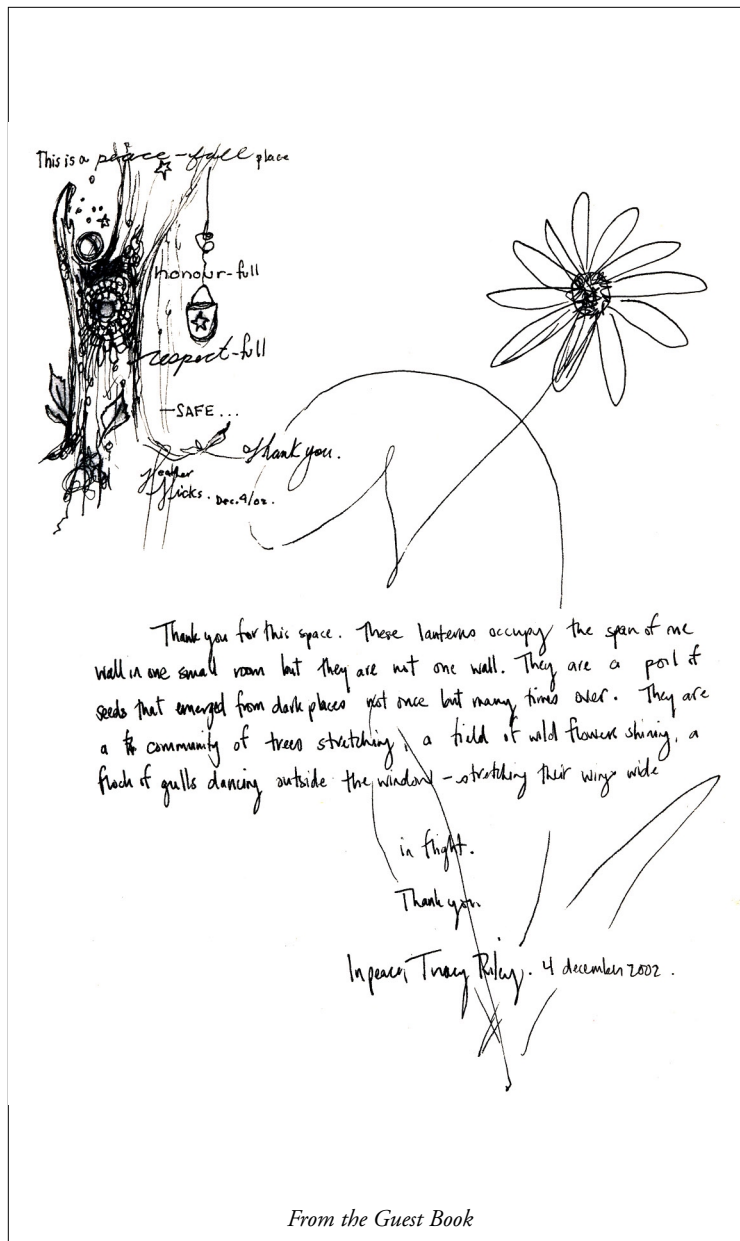 This is a peace-full place
honour-full
respect-full
—SAFE...
Thank you.
Heather
Hicks. Dec. 4/02.
Thank you for this space. These lanterns occupy the span of one
wall in one small room but they are not one wall. They are a of
seeds that emerged from dark places not once but many times over. They are
a community of trees stretching, a field of wild flowers shining, a
flock of gulls dancing outside the window – stretching their wings wide
in flight.
Thank you.
In peace, Tracy Riley. 4 december 2002.
From the Guest Book